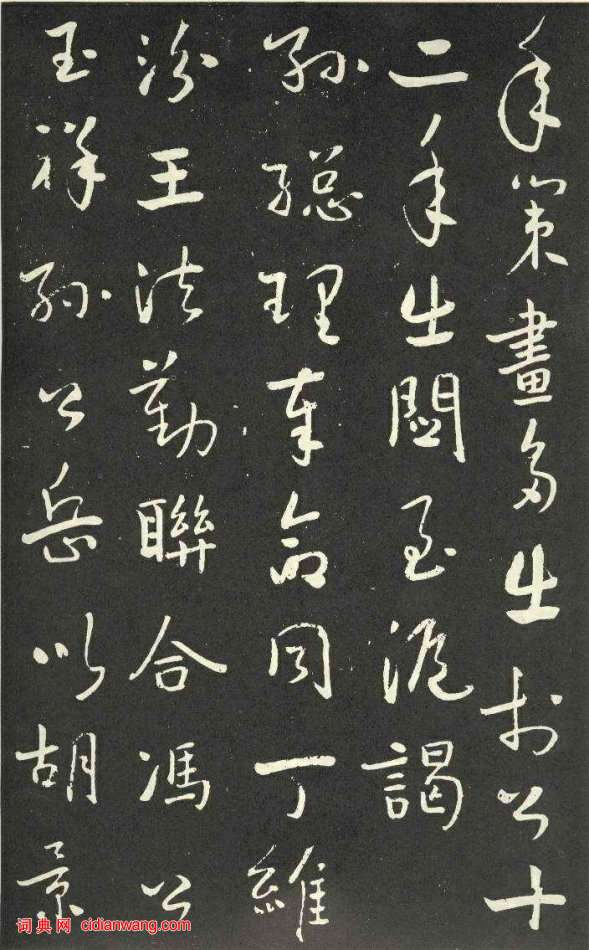 年策畫多出於公十
二年出關至滬謁
孫總理奉命同丁維
汾王法勤聯合馮公
玉祥孫公岳以胡景
词典网 cidianwang.com